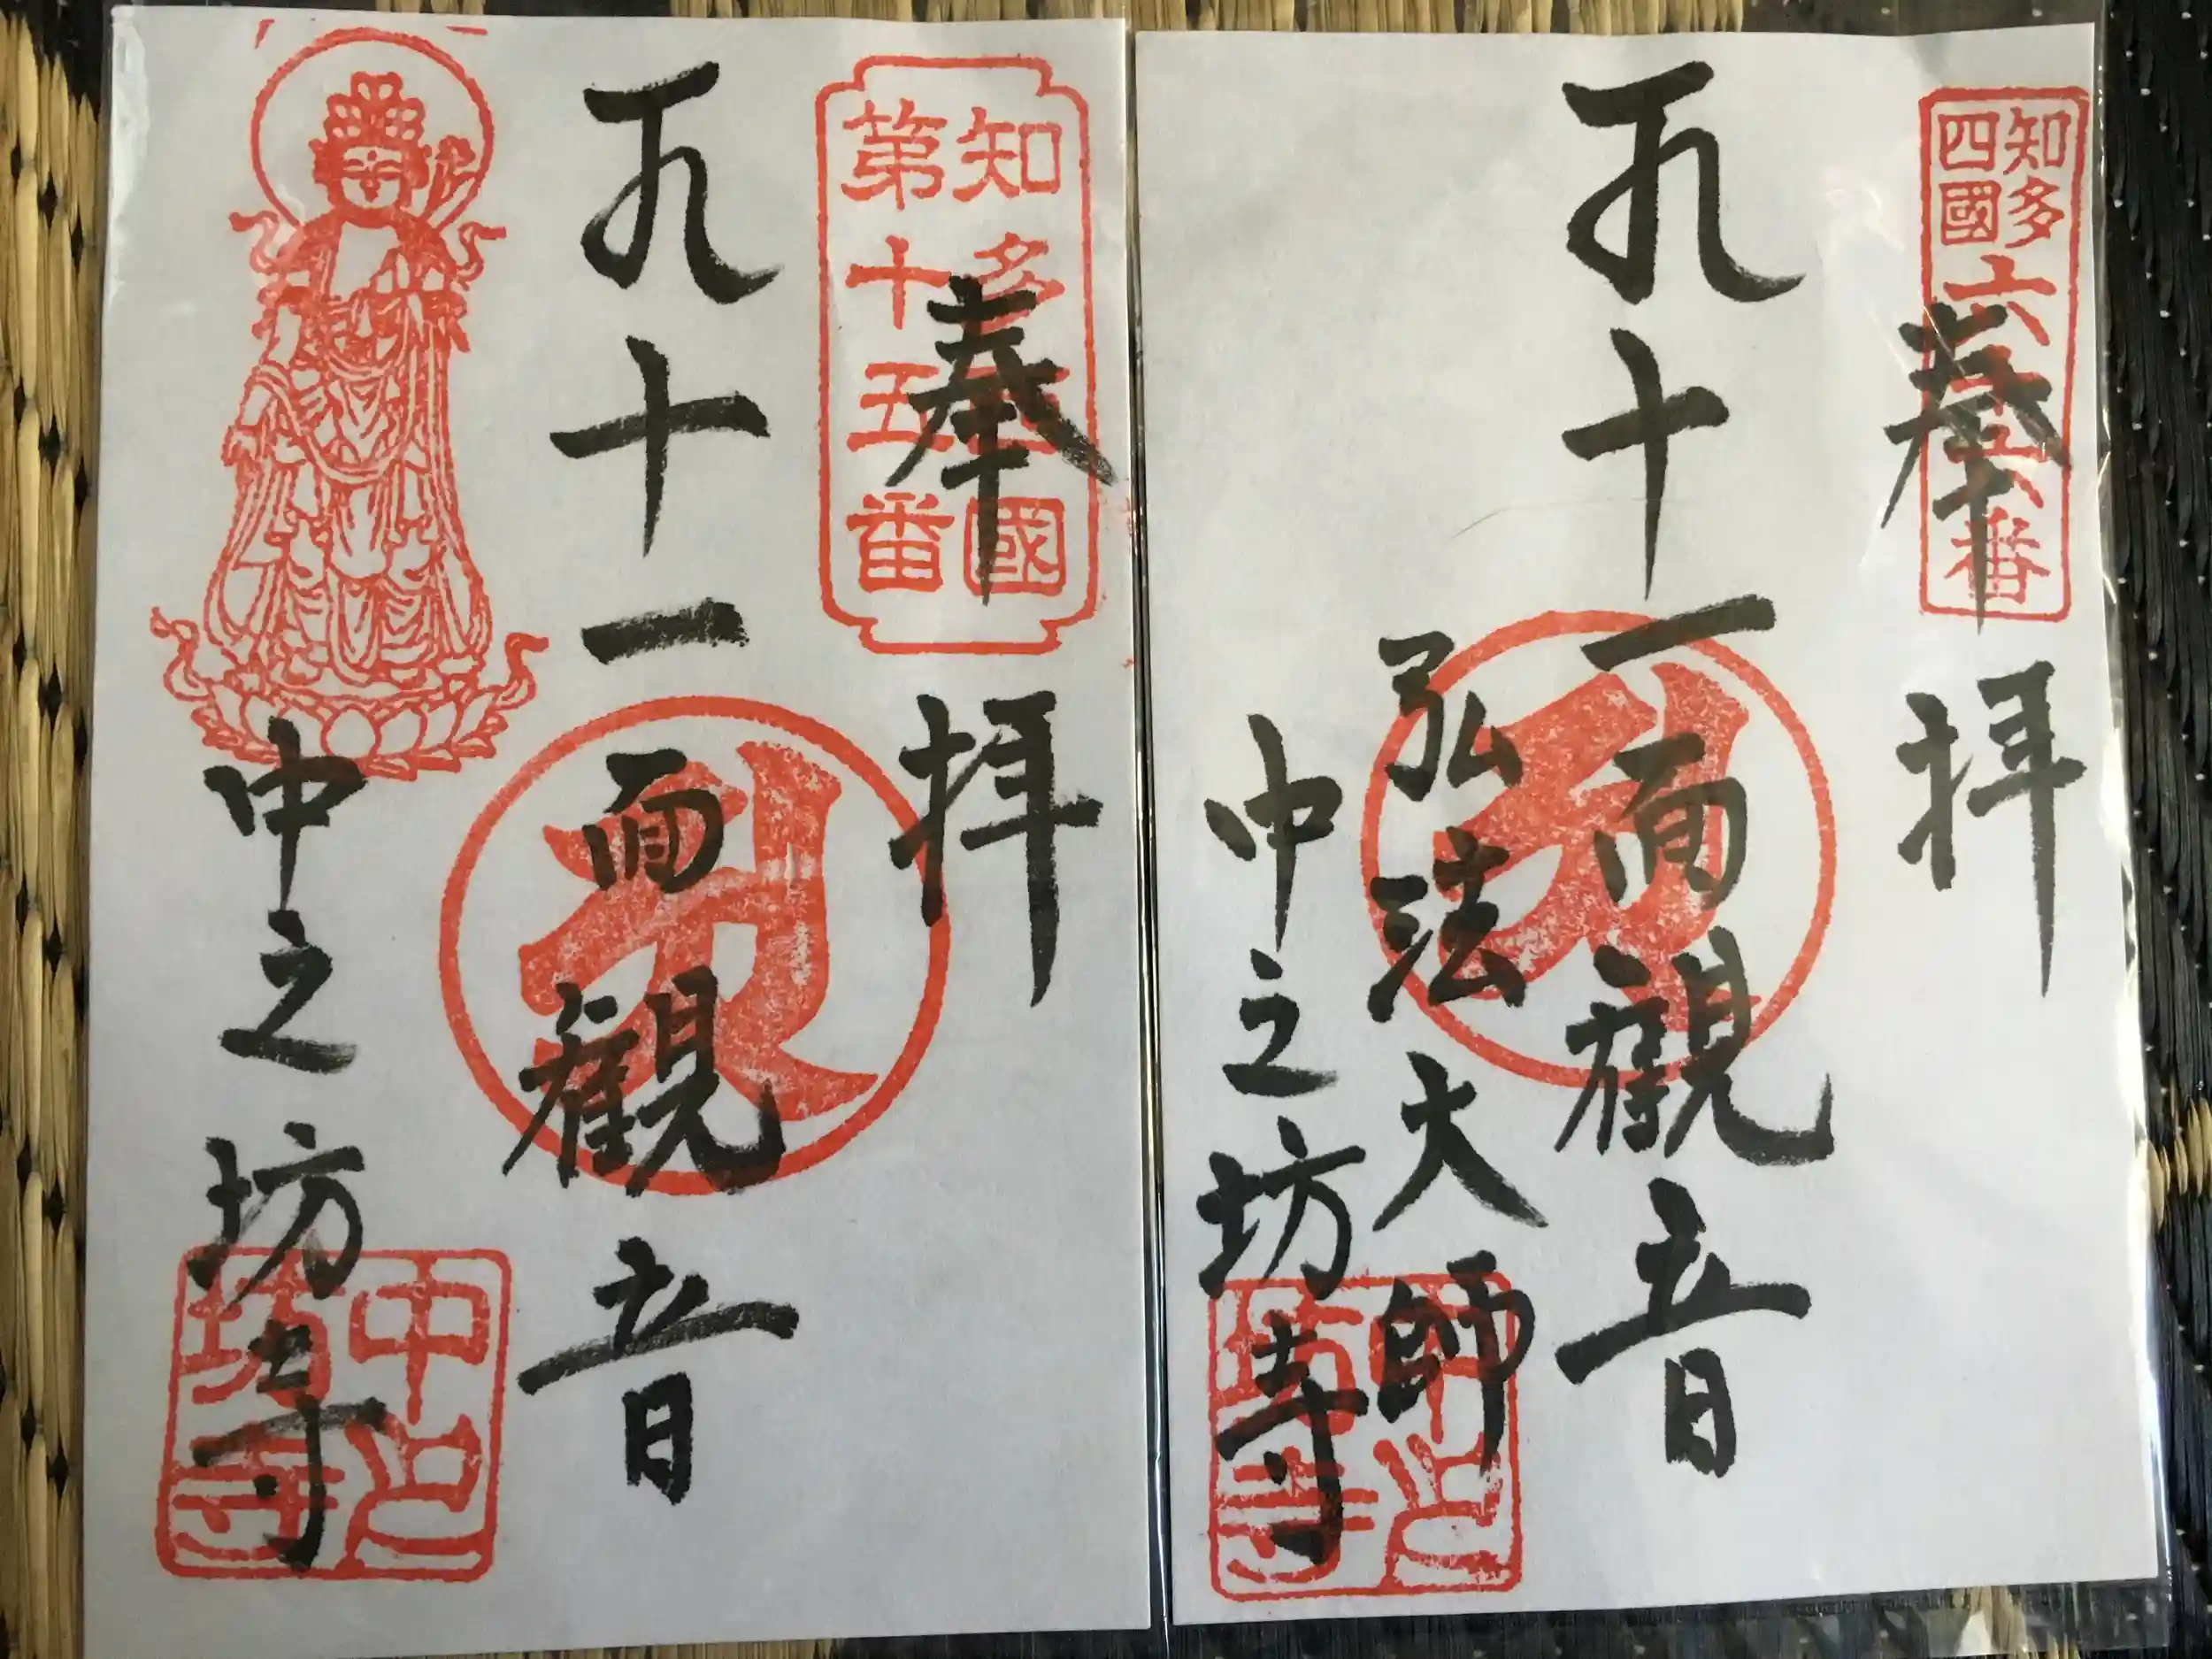 知多
四國
六十六番
奉拝
十一面觀音
弘法大師
中之坊寺
中之
坊寺
知多西國
第十五番
奉拝
十一面觀音
中之坊寺
中之
坊寺